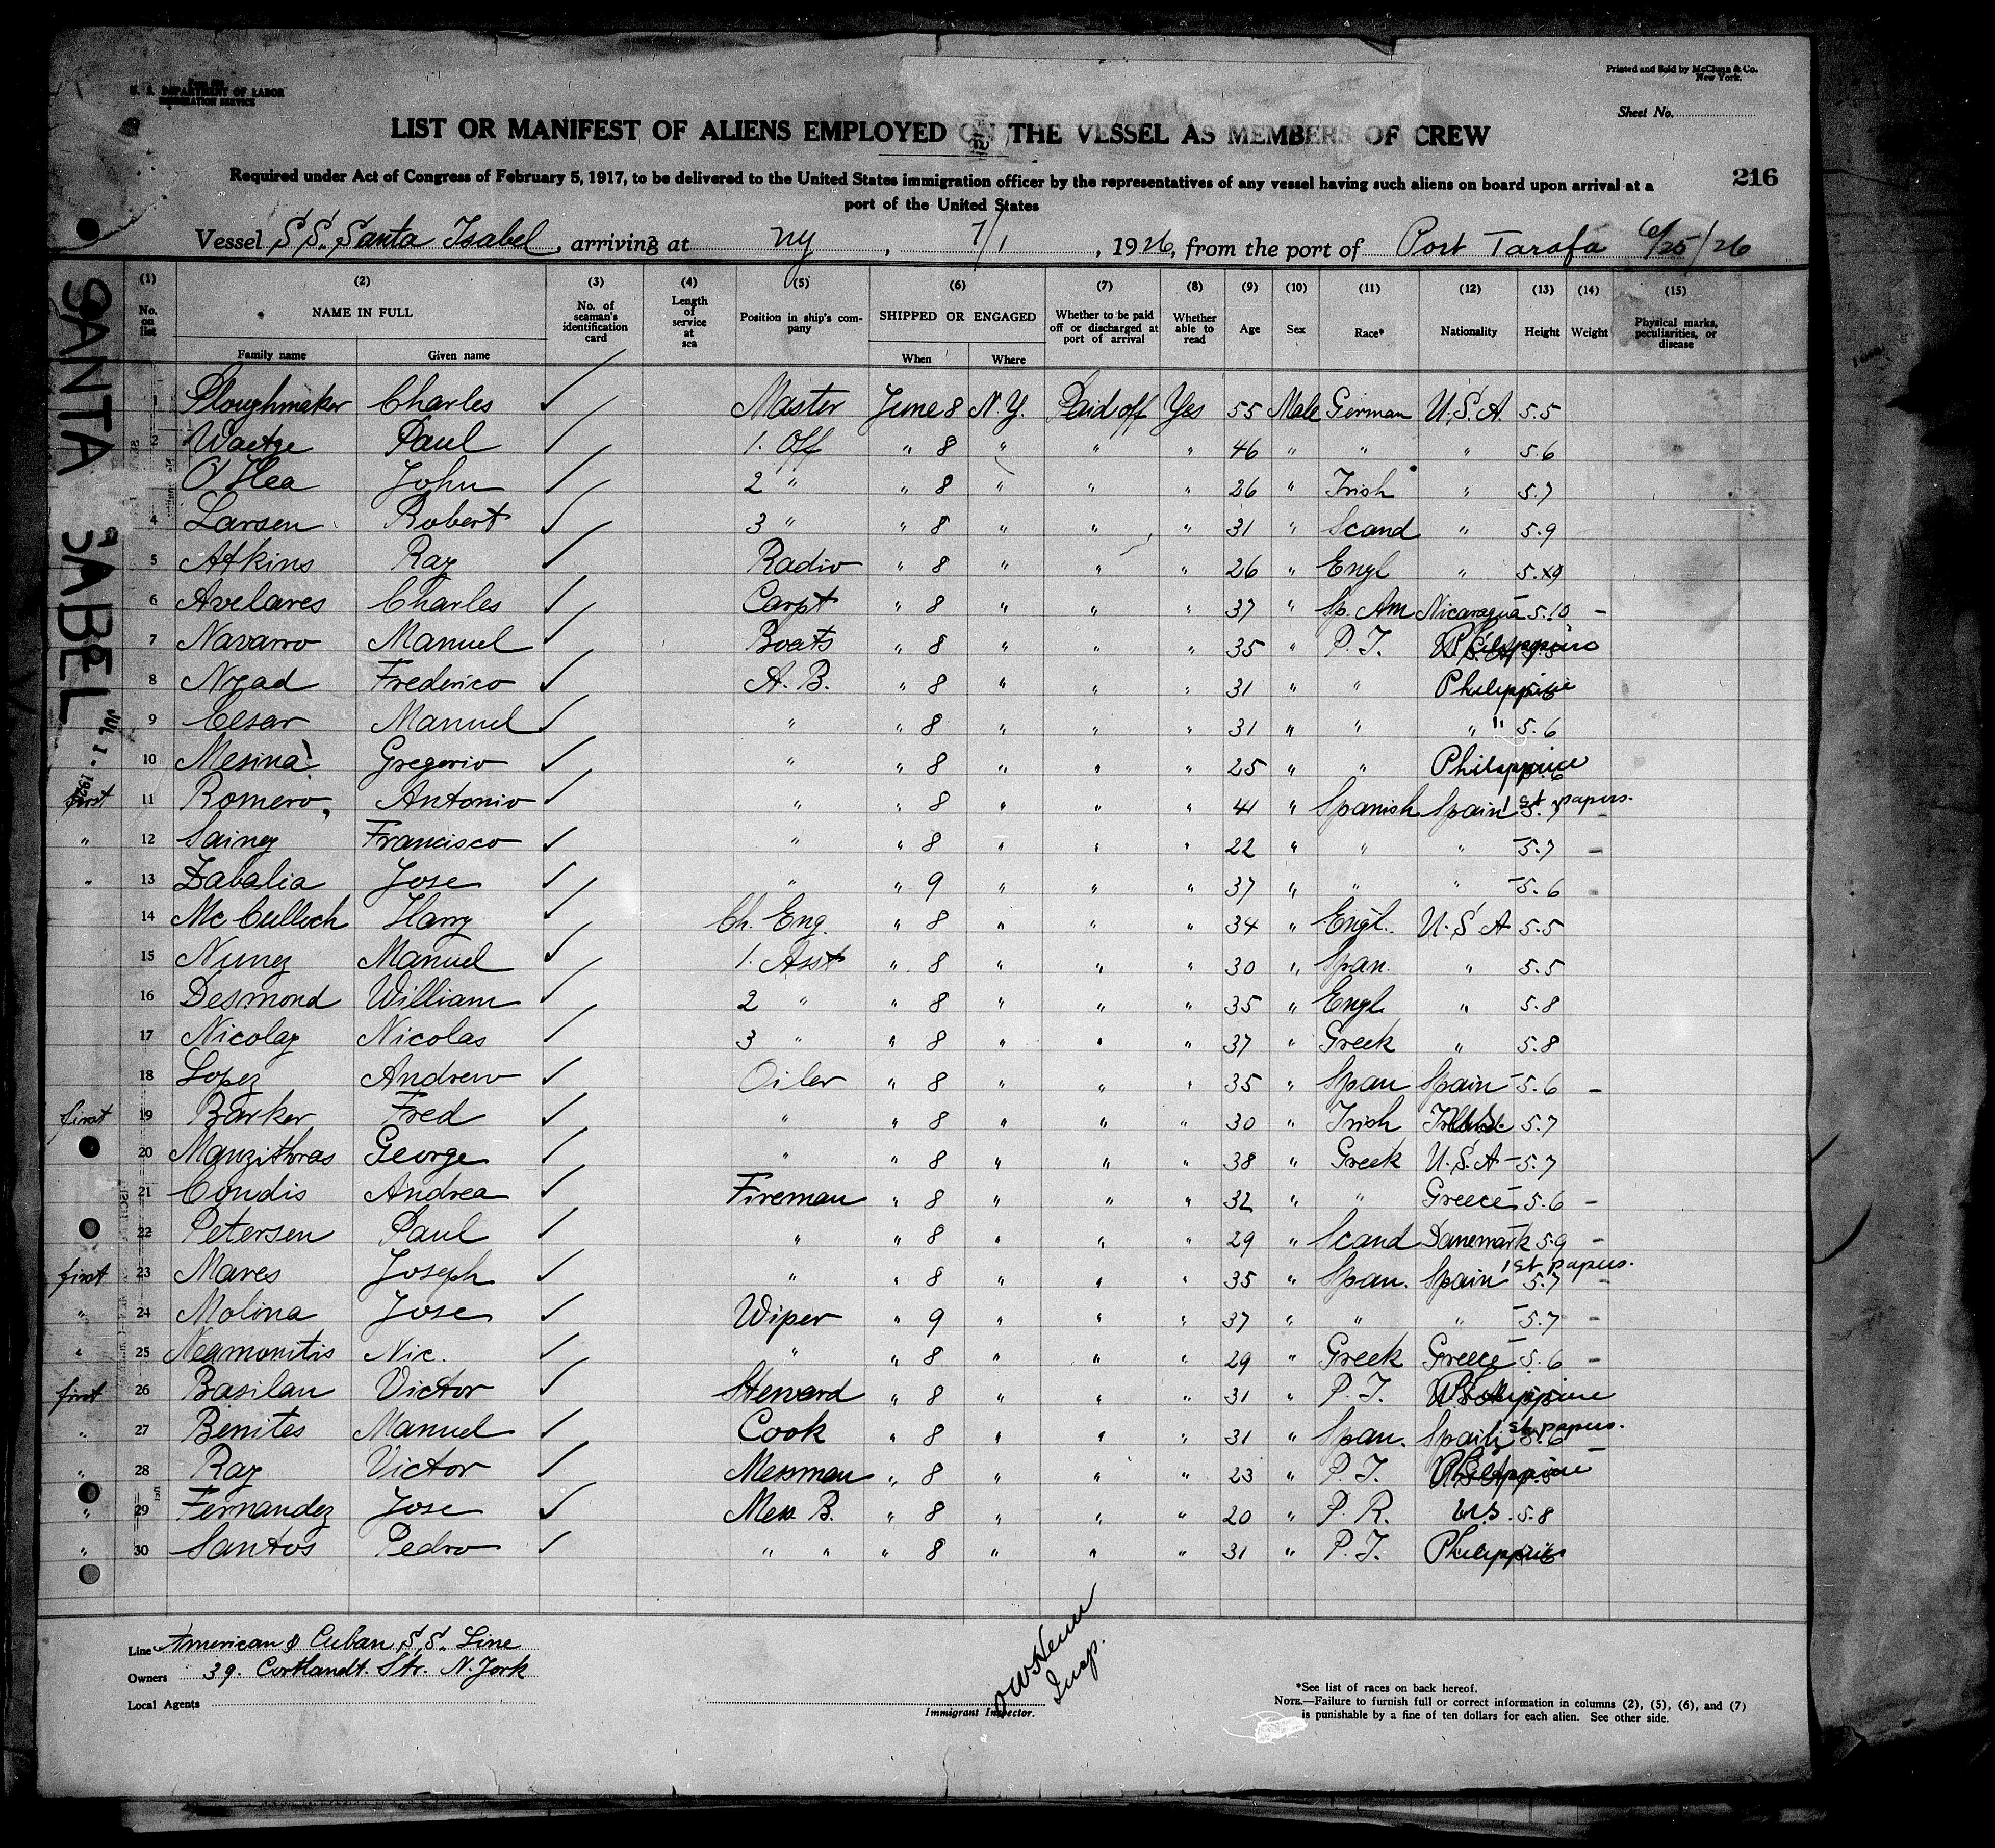 Form 689
U. S. DEPARTMENT OF LABOR
IMMIGRATION SERVICE
Printed and Sold by McClunn & Co.
New York.
Sheet No.
LIST OR MANIFEST OF ALIENS EMPLOYED ON THE VESSEL AS MEMBERS OF CREW
Required under Act of Congress of February 5, 1917, to be delivered to the United States immigration officer by the representatives of any vessel having such aliens on board upon arrival at a
port of the United States
216
Vessel S.S. Santa Isabel, arriving at NY, 7/1, 1926, from the port of Port Tarafa 6/25/26
SANTA ISABEL JUL 1 - 1926
(1) (2) (3) (4) (5) (6) (7) (8) (9) (10) (11) (12) (13) (14) (15)
No. on list NAME IN FULL No. of seaman's identification card Length of service at sea Position in ship's company SHIPPED OR ENGAGED Whether to be paid off or discharged at port of arrival Whether able to read Age Sex Race* Nationality Height Weight Physical marks, peculiarities, or disease
Family name Given name When Where
1 Ploughmaker Charles ✓ Master June 8 N.Y. Paid off Yes 55 Male German U.S.A. 5.5
2 Waetge Paul ✓ 1. Off " 8 " " " 46 " " " 5.6
O'Hea John ✓ 2 " " 8 " " " 26 " Irish " 5.7
4 Larsen Robert ✓ 3 " " 8 " " " 31 " Scand " 5.9
5 Atkins Ray ✓ Radio " 8 " " " 26 " Engl " 5.9
6 Avelares Charles ✓ Carpt " 8 " " " 37 " Sp. Am Nicaragua 5.10 -
7 Navarro Manuel ✓ Boats " 8 " " " 35 " P. I. Philippine
8 Nyad Frederico ✓ A. B. " 8 " " " 31 " " Philippine
9 Cesar Manuel ✓ " " 8 " " " 31 " " " 5.6
10 Mesina Gregorio ✓ " " 8 " " " 25 " " Philippine
first 11 Romero, Antonio ✓ " " 8 " " " 41 " Spanish Spain 1st papers. 5.7 -
" 12 Sainez Francisco ✓ " " 8 " " " 22 " " " 5.7 -
" 13 Zabalia Jose ✓ " " 9 " " " 37 " " " 5.6 -
14 Mc Culloch Harry ✓ Ch. Eng. " 8 " " " 34 " Engl. U.S.A 5.5
15 Nunez Manuel ✓ 1. Asst " 8 " " " 30 " Span. " 5.5
16 Desmond William ✓ 2 " " 8 " " " 35 " Engl. " 5.8
17 Nicolay Nicolas ✓ 3 " " 8 " " " 37 " Greek " 5.8
18 Lopez Andrew ✓ Oiler " 8 " " " 35 " Span Spain 5.6 -
first 19 Barker Fred ✓ " " 8 " " " 30 " Irish 5.7
20 Manzithras George ✓ " " 8 " " " 38 " Greek U.S.A 5.7
21 Condis Andrea ✓ Fireman " 8 " " " 32 " " Greece 5.6 -
22 Petersen Paul ✓ " " 8 " " " 29 " Scand Danemark 5.9 -
first 23 Mares Joseph ✓ " " 8 " " " 35 " Span. Spain 1st papers. 5.7 -
" 24 Molina Jose ✓ Wiper " 9 " " " 37 " " " 5.7 -
" 25 Neamonitis Nic. ✓ " " 8 " " " 29 " Greek Greece 5.6 -
first 26 Basilan Victor ✓ Steward " 8 " " " 31 " P. I. Philippine
" 27 Benites Manuel ✓ Cook " 8 " " " 31 " Span. Spain 1st papers. 5.6
" 28 Ray Victor ✓ Messman " 8 " " " 23 " P. I. Philippine
" 29 Fernandez Jose ✓ Mess B. " 8 " " " 20 " P. R. U.S. 5.8
" 30 Santos Pedro ✓ " " " 8 " " " 31 " P. I. Philippine
Line American & Cuban S.S. Line
Owners 39. Cortlandt. Str. N. York
Local Agents
Insp.
Immigrant Inspector.
*See list of races on back hereof.
NOTE.—Failure to furnish full or correct information in columns (2), (5), (6), and (7)
is punishable by a fine of ten dollars for each alien. See other side.